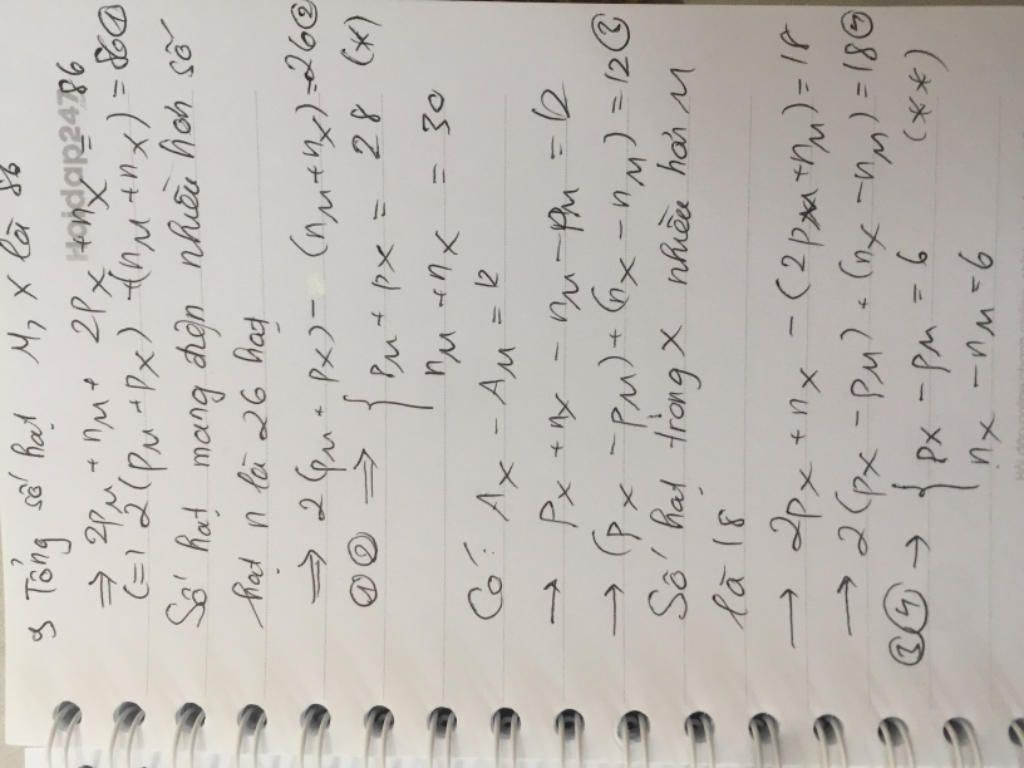 Tổng số hạt M, X là 86
⇒ 2pM + nM + 2pX + nX = 86
(=) 2(pM + pX) + (nM + nX) = 86 ①
Số hạt mang điện nhiều hơn số
hạt n là 26 hạt
⇒ 2(pM + pX) - (nM + nX) = 26 ②
①② ⇒ { pM + pX = 28 (*)
nM + nX = 30
Có: AX - AM = 12
→ pX + nX - nM - pM = 12
→ (pX - pM) + (nX - nM) = 12 ③
Số hạt trong X nhiều hơn M
là 18
→ 2pX + nX - (2pM + nM) = 18
→ 2(pX - pM) + (nX - nM) = 18
③④ → { pX - pM = 6 (**)
nX - nM = 6
Hoidap247